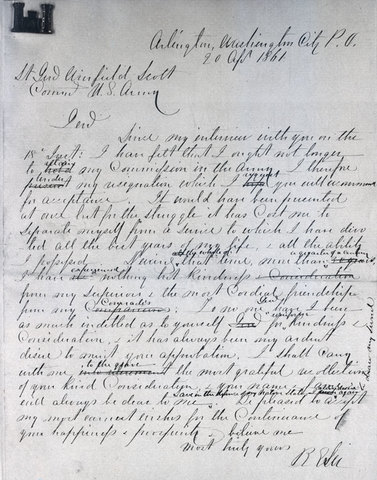 Arlington, Washington City P.O.
20 Apl 1861
Lt Genl Winfield Scott
Comd U.S. Army
Genl
Since my interview with you on the
18th Inst: I have felt that I ought not longer
to retain my Commission in the Army. I therefore
tender my resignation which I request you will recommend
for acceptance. It would have been presented
at once but for the struggle it has Cost me to
separate myself from a service to which I have devoted
all the best years of my life, & all the ability
I possessed. During the whole of that time, more than a quarter of a century
I have experienced nothing but Kindness & Consideration
from my Superiors & the most Cordial friendships
from my Comrades. To no one Genl have I been
as much indebted as to yourself for uniform Kindness &
Consideration, & it has always been my ardent
desire to merit your approbation. I shall carry
with me to the grave the most grateful recollections
of your Kind Consideration, & your name &
fame
will always be dear to me. Save in the defence of my Native State
shall I ever again draw my sword
Be pleased to accept
my most earnest wishes for the Continuance of
your happiness & prosperity & believe me
Most truly yours
R E Lee